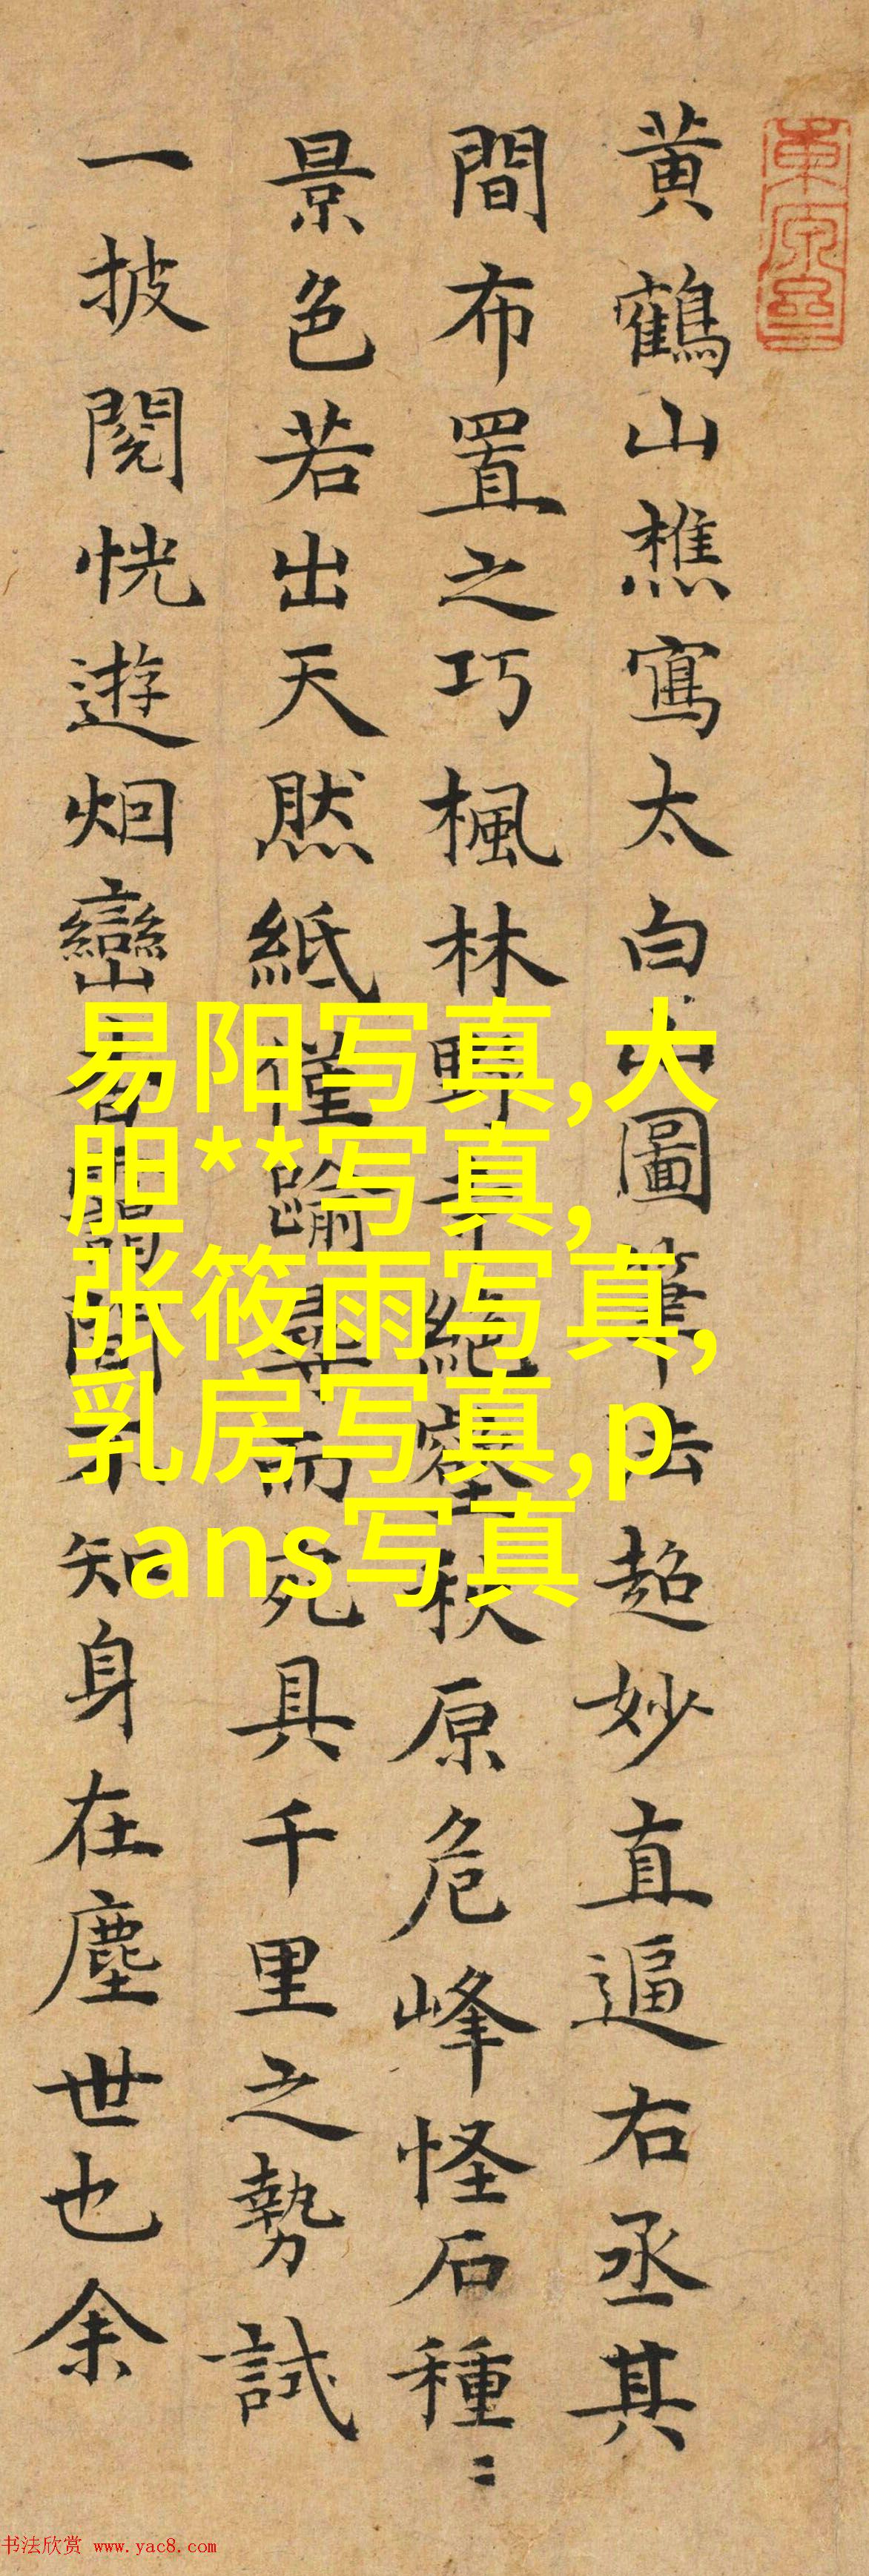 黄鶴山樵寫太白山圖筆法超妙直逼右丞其
間布置之巧楓林絶壑秋原危峰怪石種〻
景色若出天然紙僅踰尋而宛具千里之勢試
一披閱恍遊烟巒間不知身在塵世也余
易阳写真,大
胆**写真,
张筱雨写真,
乳房写真,p
ans写真
书法欣赏 www.yac8.com